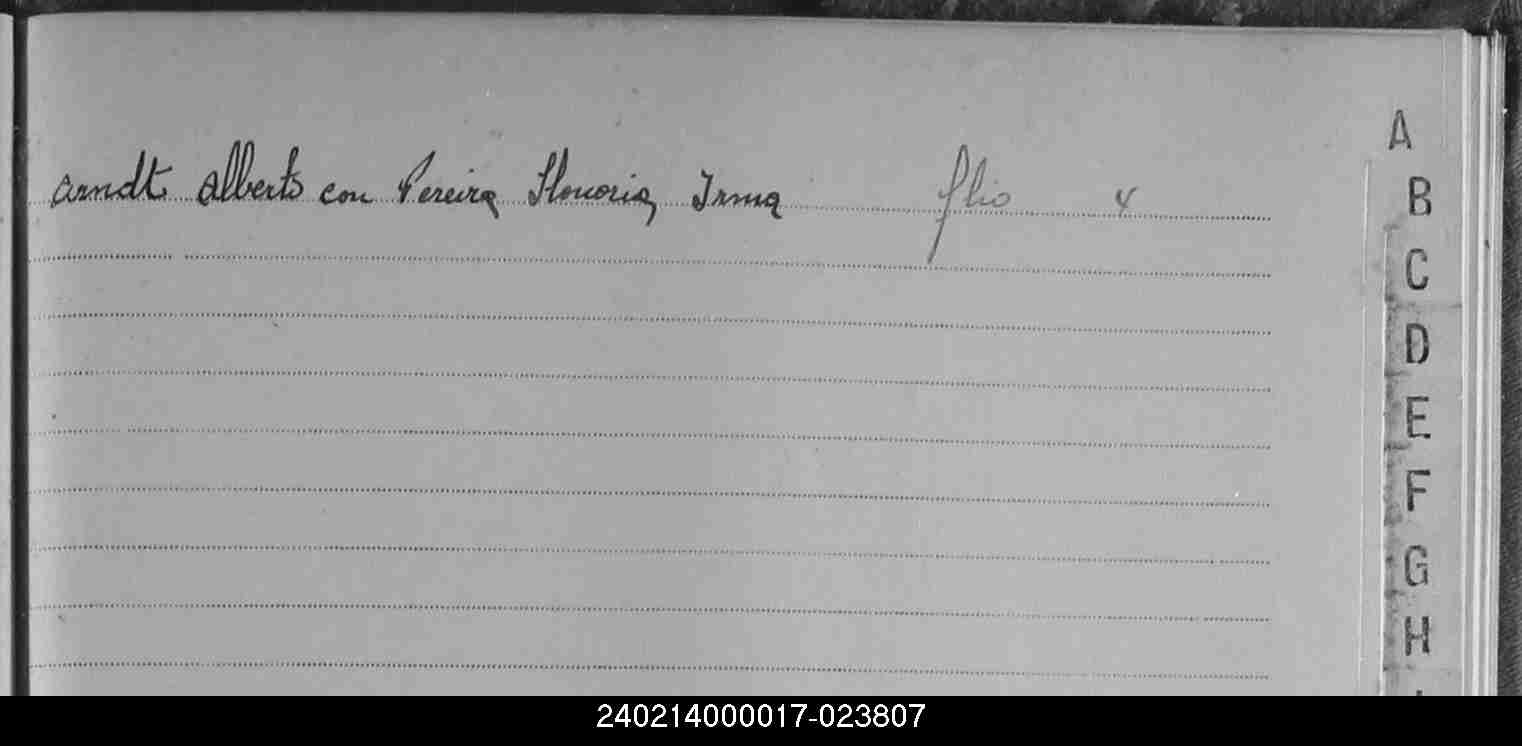 Arndt Alberto con Pereira Honoria, Irma flio 4
A
B
C
D
E
F
G
H
240214000017-023807